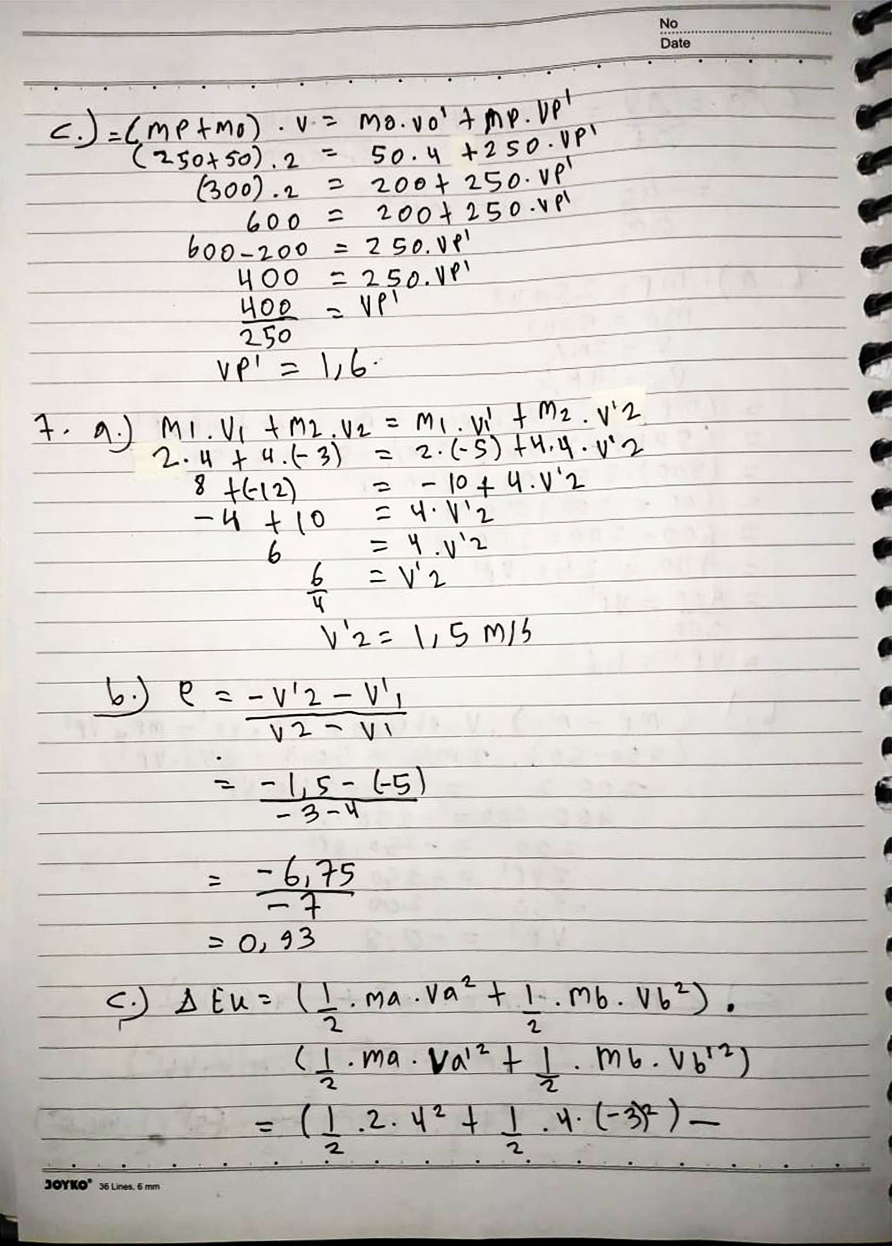 No
Date
c.) = (mp + mo) . v = mo.vo' + mp. vp'
(250+50).2 = 50.4 +250.vp'
(300).2 = 200+ 250.vp'
600 = 200+ 250.vp'
600-200 = 250.vp'
400 = 250.vp'
400/250 = vp'
vp' = 1,6.
7. a.) m1.v1 + m2.v2 = m1.v1' + m2.v'2
2.4 + 4.(-3) = 2.(-5) +4.4.v'2
8 +(-12) = -10 + 4.v'2
-4 + 10 = 4.v'2
6 = 4.v'2
6/4 = v'2
v'2 = 1,5 m/s
b.) e = -v'2 - v'1 / v2 - v1
= -1,5 - (-5) / -3-4
= -6,75 / -7
= 0,93
c.) Δ Eu = (1/2 . ma . va² + 1/2 . mb . vb²) .
(1/2 . ma . va'² + 1/2 . mb . vb'²)
= (1/2 .2. 4² + 1/2 .4. (-3)²) -
JOYKO® 36 Lines, 6 mm